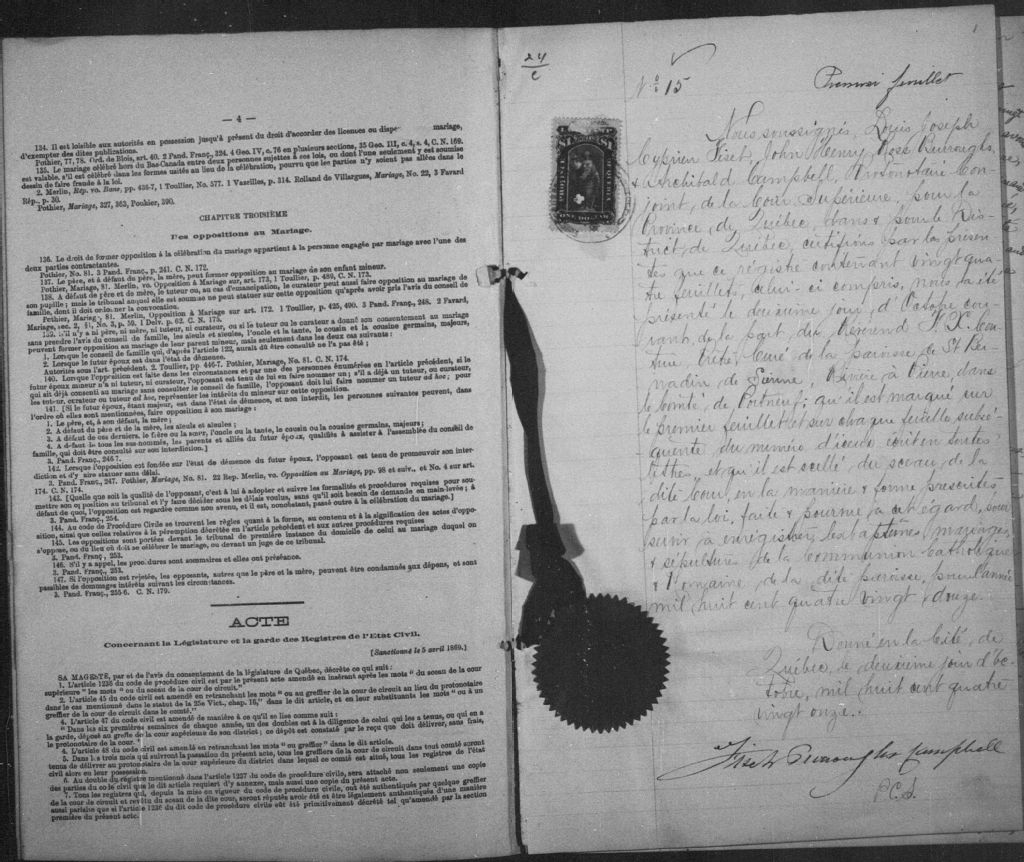 — 4 —
134. Il est loisible aux autorités en possession jusqu'à présent du droit d'accorder des licences ou dispe mariage,
d'exempter des dites publications.
Pothier, 77, 78. Ord. de Blois, art. 40. 2 Pand. Franç., 324. 4 Geo. IV, c. 76 en plusieurs sections, 35 Geo. III, c. 4, s. 4, C. N. 169.
135. Le mariage célébré hors du Bas-Canada entre deux personnes sujettes à ces lois, ou dont l'une seulement y est soumise
est valable, s'il est célébré dans les formes usités au lieu de la célébration, pourvu que les parties n'y soient pas allées dans le
dessein de faire fraude à la loi.
2. Merlin, Rép. vo. Bans, pp. 436-7, 1 Toullier, No. 577. 1 Vazeilles, p. 314. Rolland de Villargues, Mariage, No. 22, 3 Favard
Rép., p. 30.
Pothier, Mariage, 327, 363, Poukier, 390.
CHAPITRE TROISIÈME
Des oppositions au Mariage.
136. Le droit de former opposition à la célébration du mariage appartient à la personne engagée par mariage avec l'une des
deux parties contractantes.
Pothier, No. 81. 3 Pand. Franç., p. 241. C. N. 172.
137. Le père, et à défaut de père, la mère, peut former opposition au mariage de son enfant mineur.
Pothier, Mariage, 81. Merlin, vo. Opposition à Mariage, sur art. 173, 1 Toullier, p. 489, C. N. 173.
138. A défaut de père et de mère, le tuteur ou, au cas d'émancipation, le curateur peut aussi faire opposition au mariage de
son pupille; mais le tribunal auquel elle est soumise ne peut statuer sur cette opposition qu'après avoir pris l'avis du conseil de
famille, dont il doit ordonner la convocation.
Pothier, Mariage, 81. Merlin, Opposition à Mariage sur art. 172. 1 Toullier, p. 425, 490. 3 Pand. Franç., 248. 2 Favard,
Mariage, sec. 2, §1, No. 3, p. 59. 1 Delv. p. 62. C. N. 175.
139. S'il n'y a ni père, ni mère, ni tuteur, ni curateur, ou si le tuteur ou le curateur a donné son consentement au mariage
sans prendre l'avis du conseil de famille, les aïeuls et aïeules, l'oncle et la tante, le cousin et la cousine germains, majeurs,
peuvent former opposition au mariage de leur parent mineur, mais seulement dans les deux cas suivants :
1. Lorsque le conseil de famille qui, d'après l'article 122, aurait dû être consulté ne l'a pas été ;
2. Lorsque le futur époux est dans l'état de démence.
Autorités sous l'art. précédent. 2. Toullier, pp 446-7. Pothier, Mariage, No. 81. C. N. 174.
140. Lorsque l'opposition est faite dans les circonstances et par une des personnes énumérées en l'article précédent, si le
futur époux mineur n'a ni tuteur, ni curateur, l'opposant est tenu de lui en faire nommer un ; s'il a déjà un tuteur, ou curateur,
qui ait déjà consenti au mariage sans consulter le conseil de famille, l'opposant doit lui faire nommer un tuteur ad hoc ; pour
les tuteur, curateur ou tuteur ad hoc, représenter les intérêts du mineur sur cette opposition.
141. [Si le futur époux, étant majeur, est dans l'état de démence, et non interdit, les personnes suivantes peuvent, dans
l'ordre où elles sont mentionnées, faire opposition à son mariage :
1. Le père, et, à son défaut, la mère ;
2. A défaut du père et de la mère, les aïeuls et aïeules ;
3. A défaut de ces derniers, le frère ou la sœur, l'oncle ou la tante, le cousin ou la cousine germains, majeurs ;
4. A défaut de tous les sus-nommés, les parents et alliés du futur époux, qualifiés à assister à l'assemblée du conseil de
famille, qui doit être consulté sur son interdiction.]
3. Pand. Franç., 246 7.
142. Lorsque l'opposition est fondée sur l'état de démence du futur époux, l'opposant est tenu de promouvoir son inter-
diction et d'y faire statuer sans délai.
3. Pand. Franç., 247. Pothier, Mariage, No. 81. 22 Rep. Merlin, vo. Opposition au Mariage, pp. 98 et suiv., et No. 4 sur art.
174. C. N. 174.
143. [Quelle que soit la qualité de l'opposant, c'est à lui à adopter et suivre les formalités et procédures requises pour sou-
mettre son opposition au tribunal et l'y faire décider sous les délais voulus, sans qu'il soit besoin de demande en main-levée ; à
défaut de quoi, l'opposition est regardée comme non avenu, et il est, nonobstant, passé outre à la célébration du mariage.]
3. Pand. Franç., 254.
144. Au code de Procédure Civile se trouvent les règles quant à la forme, au contenu et à la signification des actes d'oppo-
sition, ainsi que celles relatives à la péremption décrétée en l'article précédent et aux autres procédures requises
145. Les oppositions sont portées devant le tribunal de première instance du domicile de celui au mariage duquel on
s'oppose, ou du lieu où doit se célébrer le mariage, ou devant un juge de ce tribunal.
3. Pand. Franç, 253.
146. S'il y a appel, les procédures sont sommaires et elles ont préséance.
3. Pand. Franç., 253.
147. Si l'opposition est rejetée, les opposants, autres que le père et la mère, peuvent être condamnés aux dépens, et sont
passibles de dommages intérêts suivant les circonstances.
3. Pand. Franç., 255-6. C. N. 179.
ACTE
Concernant la Législature et la garde des Registres de l'Etat Civil.
[Sanctionné le 5 avril 1869.]
SA MAGESTÉ, par et de l'avis du consentement de la législature de Québec, décrète ce qui suit :
1. L'article 1236 du code de procédure civil est par le présent acte amendé en insérant après les mots " du sceau de la cour
supérieure " les mots " ou du sceau de la cour de circuit."
2. L'article 45 du code civil est amendé en retranchant les mots " ou au greffier de la cour de circuit au lieu du protonotaire
dans le cas mentionné dans le statut de la 25e Vict., chap. 16," dans le dit article, et en leur substituants les mots " ou à un
greffier de la cour de circuit dans le comté."
4. L'article 47 du code civil est amendé de manière à ce qu'il se lise comme suit :
" Dans les six premières semaines de chaque année, un des doubles est à la diligence de celui qui les a tenus, ou qui en a
la garde, déposé au greffe de la cour supérieure de son district ; ce dépôt est constaté par le reçu que doit délivrer, sans frais,
le protonotaire de la cour. "
4. L'article 48 du code civil est amendé en retranchant les mots " ou greffier " dans le dit article.
5. Dans les trois mois qui suivront la passation du présent acte, tous les greffiers de la cour de circuit dans tout comté seront
tenus de délivrer au protonotaire de la cour supérieure du district dans lequel ce comté est situé, tous les registres de l'état
civil alors en leur possession.
6. Au double du régistre mentionné dans l'article 1237 du code de procédure civile, sera attaché non seulement une copie
des parties du code civil que le dit article requiert d'y annexer, mais aussi une copie du présent acte.
7. Tous les registres qui, depuis la mise en vigueur du code de procédure civile, ont été authentiqués par quelque greffier
de la cour de circuit et revêtu du sceau de la dite cour, seront réputés avoir été et être légalement authentiqués d'une manière
aussi parfaite que si l'article 1236 du dit code de procédure civile eût été primitivement décrété tel qu'amendé par la section
première du présent acte.
24
c
1
No 15
Premier feuillet
PROVINCE QUEBEC
ONE DOLLAR
Nous soussignés, Louis Joseph
Cyprien Fiset, John Henry Ross Burroughs,
& Archibald Campbell, Protonotaire Con-
joint, de la Cour Supérieure, pour la
Province de Québec, dans & pour le Dis-
trict de Québec, certifions par les présen-
tes que ce régistre contenant vingt qua-
tre feuillets, celui-ci compris, nous a été
présenté le deuxième jour, d'Octobre cou-
rant, de la part du Révérend F. X. Cou-
ture, Prêtre, Curé de la paroisse de St Ber-
nadin de Sienne, Rivière à Pierre, dans
le comté, de Portneuf; qu'il est marqué sur
le premier feuillet et sur chaque feuillet subsé-
quente du numéro d'icelui écrit en toutes
lettres, et qu'il est scellé du sceau, de la
dite Cour, en la manière & forme prescrites
par la loi, faite & pourvue à cet égard, pour
servir à enregistrer les baptêmes, mariages,
& sépultures de la communion Catholique
& Romaine, de la dite paroisse, pour l'année
mil huit cent quatre vingt douze.
Donné en la Cité, de
Québec, le deuxième jour d'Oc-
tobre, mil huit cent quatre
vingt onze.
Fiset Burroughs Campbell
P.C.S.